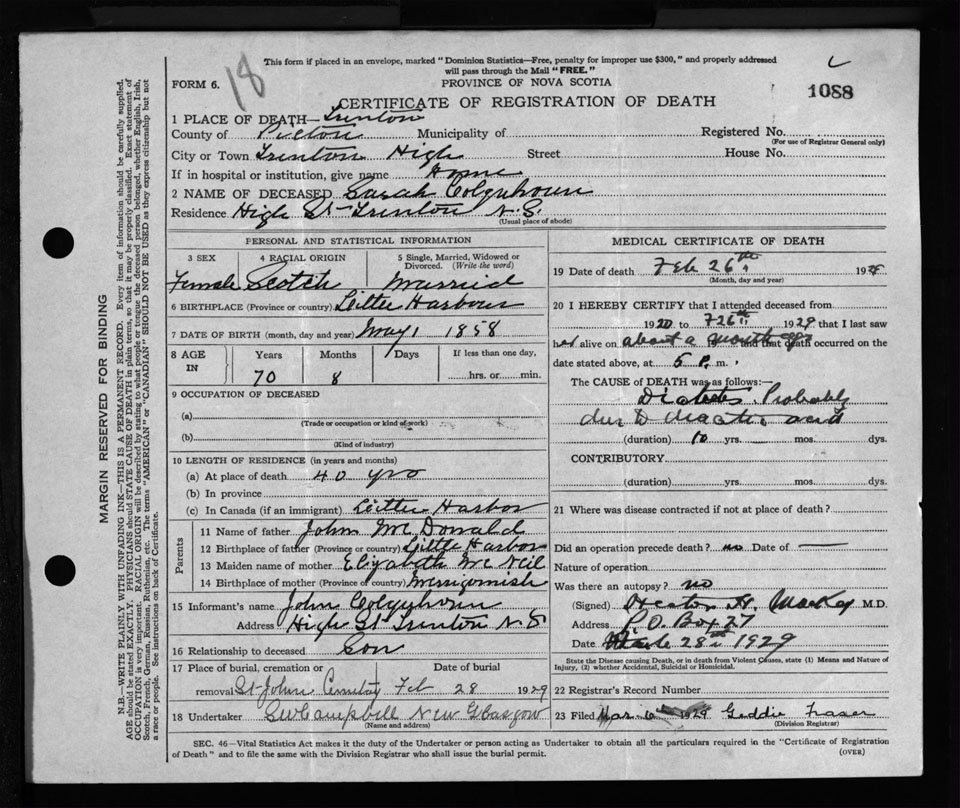 This form if placed in an envelope, marked "Dominion Statistics—Free, penalty for improper use $300," and properly addressed
will pass through the Mail "FREE."
FORM 6.
18
PROVINCE OF NOVA SCOTIA
1088
CERTIFICATE OF REGISTRATION OF DEATH
1 PLACE OF DEATH— Trenton
County of Pictou Municipality of Registered No.
(For use of Registrar General only)
City or Town Trenton High Street House No.
If in hospital or institution, give name Home
2 NAME OF DECEASED Sarah Colquhoun
Residence High St Trenton N.S.
(Usual place of abode)
MARGIN RESERVED FOR BINDING
N.B.—WRITE PLAINLY WITH UNFADING INK—THIS IS A PERMANENT RECORD. Every item of information should be carefully supplied.
AGE should be stated EXACTLY. PHYSICIANS should STATE CAUSE OF DEATH in plain terms, so that it may be properly classified. Exact statement of
OCCUPATION is very important. RACIAL ORIGIN will be described by stating to what people or tongue the deceased person belonged, whether English, Irish,
Scotch, French, German, Russian, Ruthenian, etc. The terms "AMERICAN" or "CANADIAN" SHOULD NOT BE USED as they express citizenship but not
a race or people. See instructions on back of Certificate.
PERSONAL AND STATISTICAL INFORMATION
3 SEX 4 RACIAL ORIGIN 5 Single, Married, Widowed or
Divorced. (Write the word)
Female Scotch Married
6 BIRTHPLACE (Province or country) Little Harbour
7 DATE OF BIRTH (month, day and year) May 1 1858
8 AGE IN Years Months Days If less than one day,
70 8 hrs. or min.
9 OCCUPATION OF DECEASED
(a)
(Trade or occupation or kind of work)
(b)
(Kind of industry)
10 LENGTH OF RESIDENCE (in years and months)
(a) At place of death 40 yrs
(b) In province
(c) In Canada (if an immigrant) Little Harbor
Parents
11 Name of father John McDonald
12 Birthplace of father (Province or country) Little Harbor
13 Maiden name of mother Elizabeth McNeil
14 Birthplace of mother (Province of country) Merrigomish
15 Informant's name John Colquhoun
Address High St Trenton N.S
16 Relationship to deceased Son
17 Place of burial, cremation or Date of burial
removal St John Cemetay Feb 28 1929
18 Undertaker Campbell New Glasgow
(Name and address)
MEDICAL CERTIFICATE OF DEATH
19 Date of death Feb 26th 192
(Month, day and year)
20 I HEREBY CERTIFY that I attended deceased from
1920 to F 26th 1929 that I last saw
her alive on about a month ago and that death occurred on the
date stated above, at 5 P. m.
The CAUSE OF DEATH was as follows:—
Diabetes. Probably
due to acid
(duration) 10 yrs. mos. dys.
CONTRIBUTORY
(duration) yrs. mos. dys.
21 Where was disease contracted if not at place of death?
Did an operation precede death? no Date of —
Nature of operation
Was there an autopsy? no
(Signed) H. MacKay M.D.
Address P.O. Box 27
Date 28th 1929
State the Disease causing Death, or in death from Violent Causes, state (1) Means and Nature of
Injury, (2) whether Accidental, Suicidal or Homicidal.
22 Registrar's Record Number
23 Filed Mar 6 1929 Geddie Fraser
(Division Registrar)
SEC. 46—Vital Statistics Act makes it the duty of the Undertaker or person acting as Undertaker to obtain all the particulars required in the "Certificate of Registration
of Death" and to file the same with the Division Registrar who shall issue the burial permit.
(OVER)